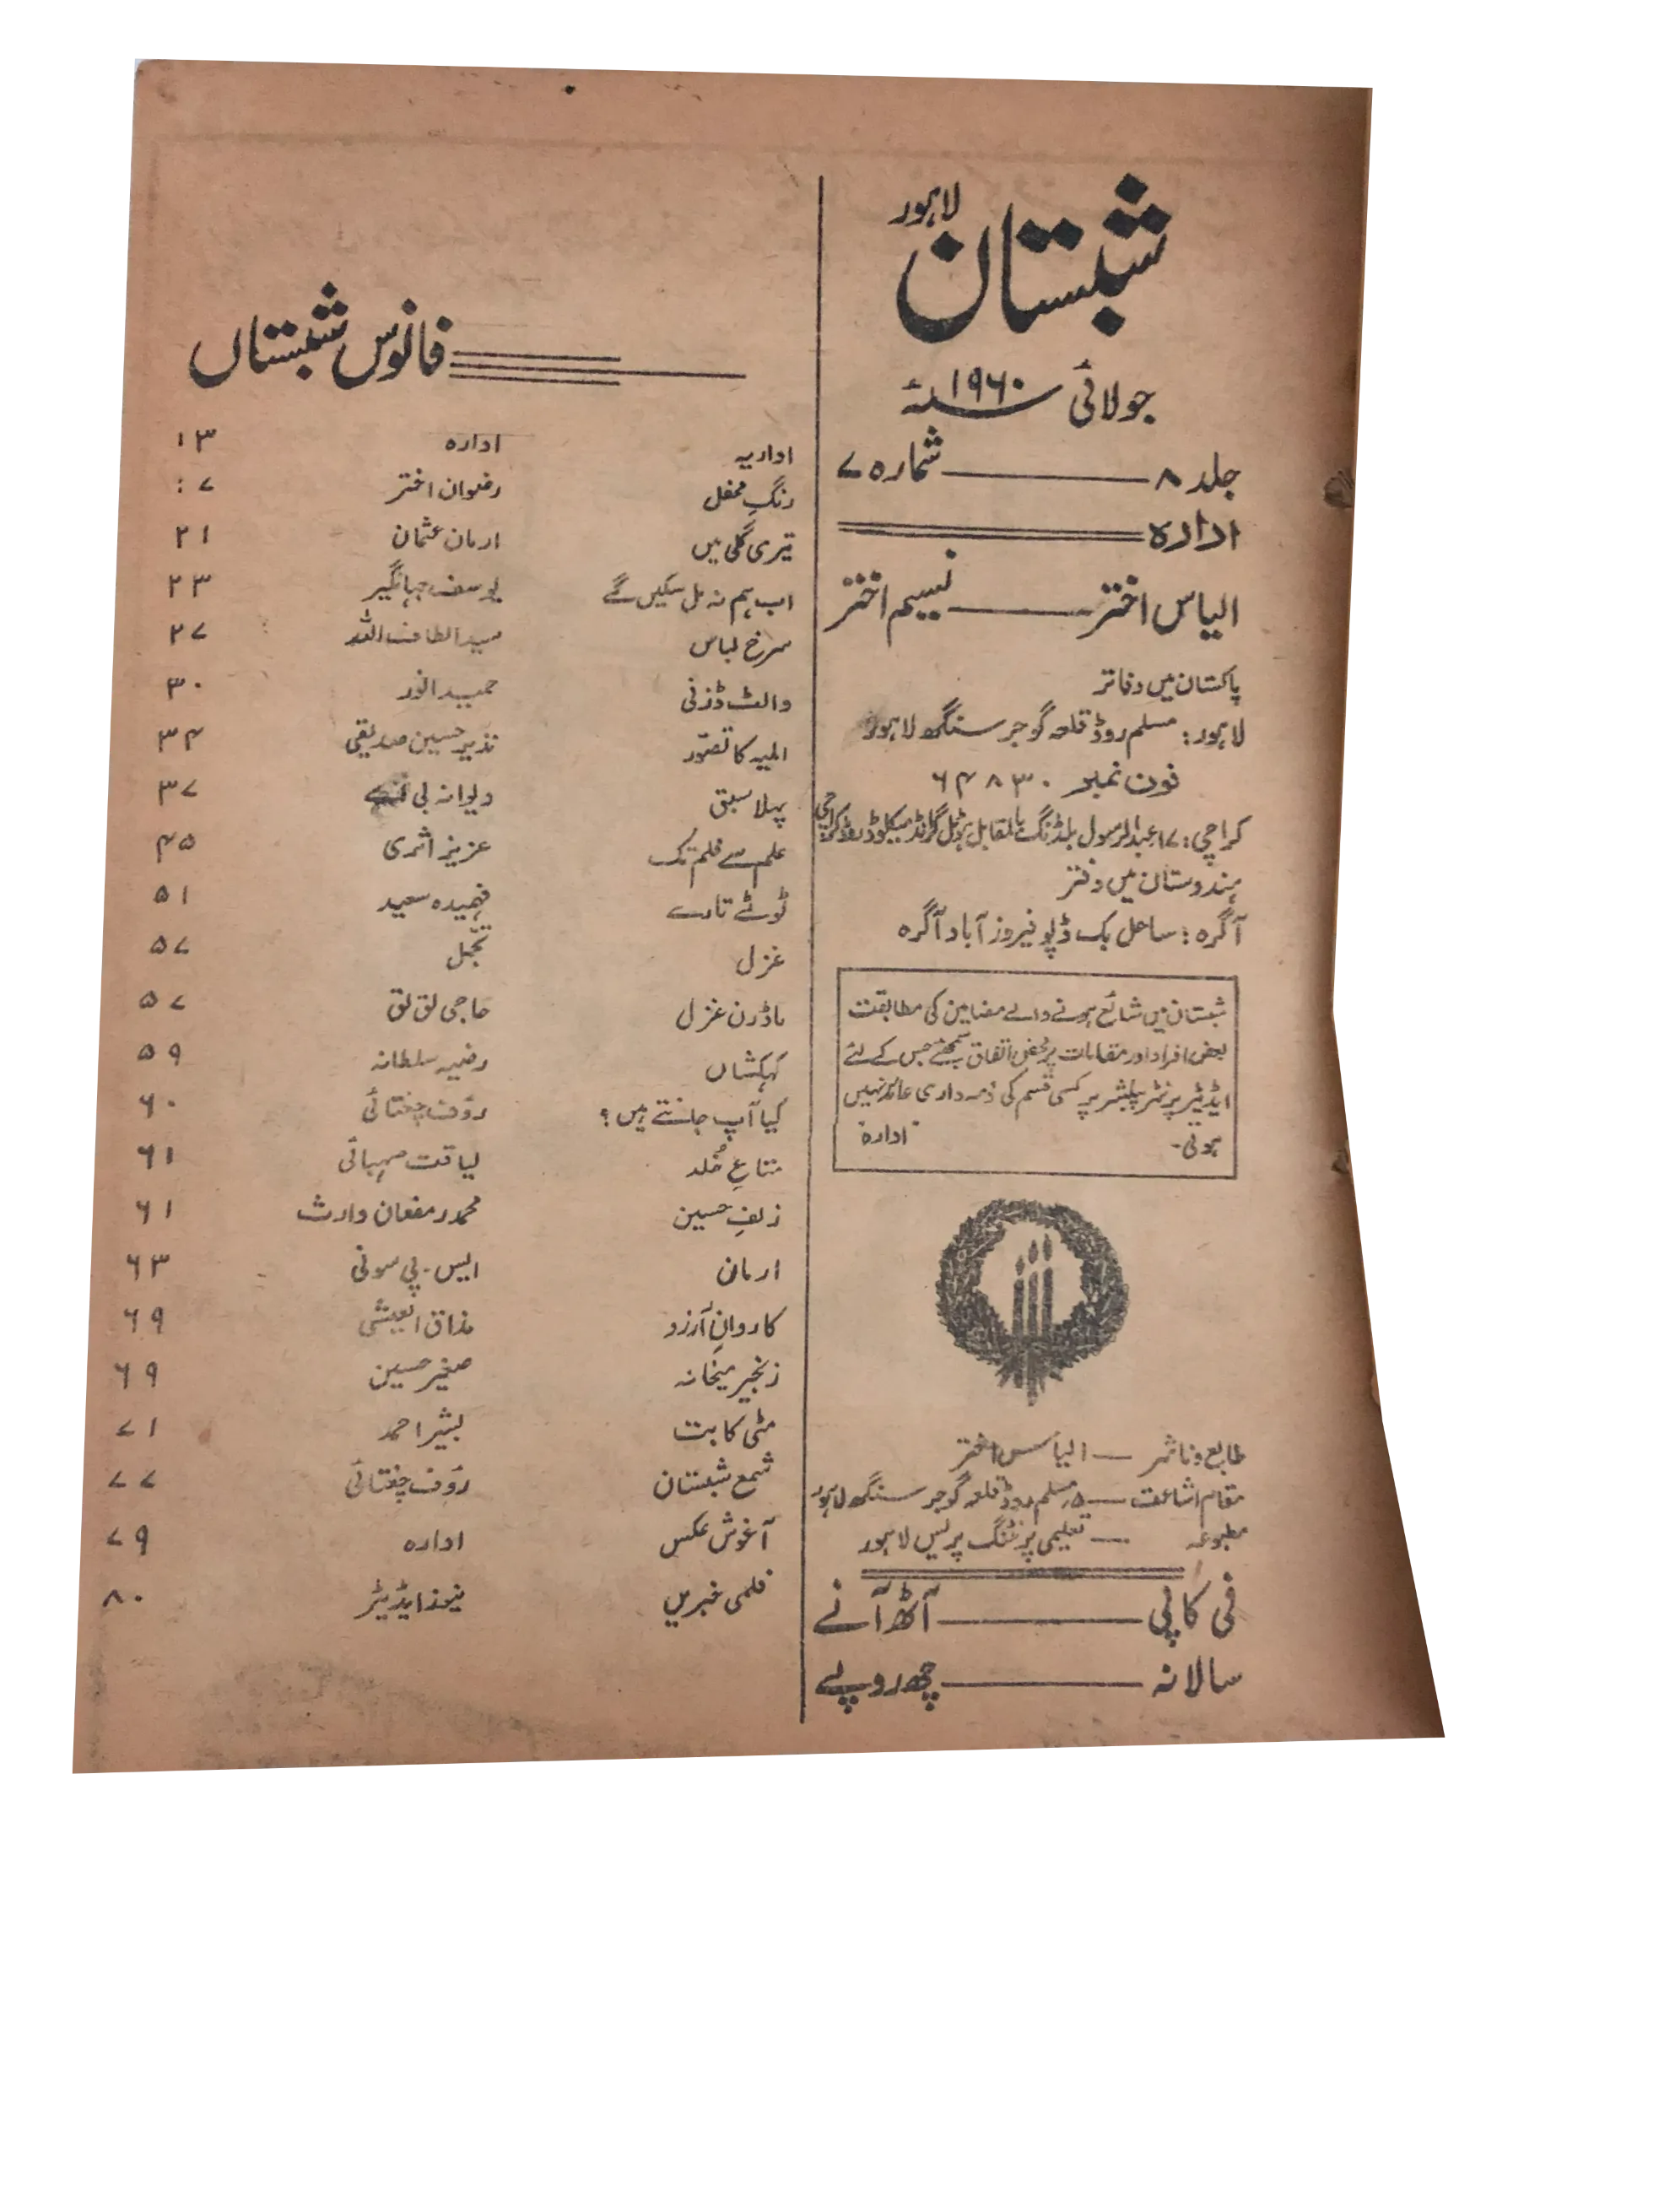 شبستان لاہور
جولائی سنہ ۱۹۶۰ء
جلد ۸ ــــــ شمارہ ۷
ادارہ
الیاس اختر ــــــ نسیم اختر
پاکستان میں دفاتر
لاہور: مسلم روڈ قلعہ گوجر سنگھ لاہور
فون نمبر ۶۴۸۳۰
کراچی: ۱۷ عبدالرسول بلڈنگ بالمقابل ہوٹل گرانڈ میکلوڈ روڈ کراچی
ہندوستان میں دفتر
آگرہ: ساحل بک ڈپو فیروز آباد آگرہ
شبستان میں شائع ہونے والے مضامین کی مطابقت
بعض افراد اور مقامات پر محض اتفاق سمجھئے جس کے لئے
ایڈیٹر پرنٹر پبلشر پر کسی قسم کی ذمہ داری عائد نہیں
ہوتی۔ "ادارہ"
طابع و ناشر ــ الیاس اختر
مقام اشاعت ــ ۵ مسلم روڈ قلعہ گوجر سنگھ لاہور
مطبوعہ ــ تعلیمی پرنٹنگ پریس لاہور
فی کاپی ــــــ آٹھ آنے
سالانہ ــــــ چھ روپے
فانوس شبستاں
اداریہ ادارہ ۱۳
رنگِ محفل رضوان اختر ۱۷
تیری گلی میں ارمان عثمان ۲۱
اب ہم نہ مل سکیں گے یوسف جہانگیر ۲۳
سرخ لباس سید الطاف اللہ ۲۷
والٹ ڈزنی حمید انور ۳۰
المیہ کا تصوّر نذیر حسین صدیقی ۳۴
پہلا سبق دیوانہ بی اے ۳۷
علم سے فلم تک عزیز اثری ۴۵
ٹوٹے تارے فہمیدہ سعید ۵۱
غزل تجمّل ۵۷
ماڈرن غزل حاجی لق لق ۵۷
کہکشاں رضیہ سلطانہ ۵۹
کیا آپ جانتے ہیں؟ رؤف چغتائی ۶۰
متاعِ خُلد لیاقت صہبائی ۶۱
زلفِ حسین محمد رمضان وارث ۶۱
ارمان ایس۔ پی سونی ۶۳
کاروانِ آرزو مذاق العیشی ۶۹
زنجیر میخانہ صغیر حسین ۶۹
مٹی کا بت بشیر احمد ۷۱
شمع شبستان رؤف چغتائی ۷۷
آغوش عکس ادارہ ۷۹
فلمی خبریں نیوز ایڈیٹر ۸۰